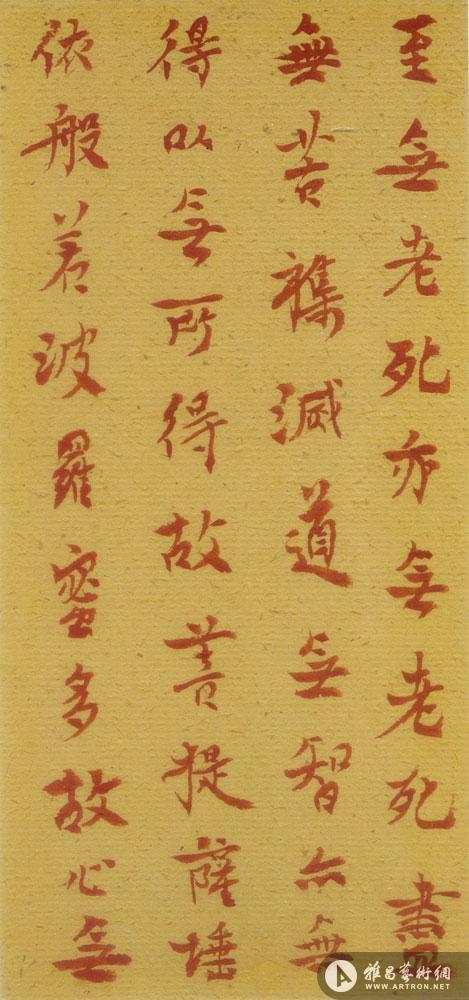 至無老死亦無老死盡
無苦集滅道無智亦無
得以無所得故菩提薩埵
依般若波羅蜜多故心無
雅昌藝術網
WWW.ARTRON.NET